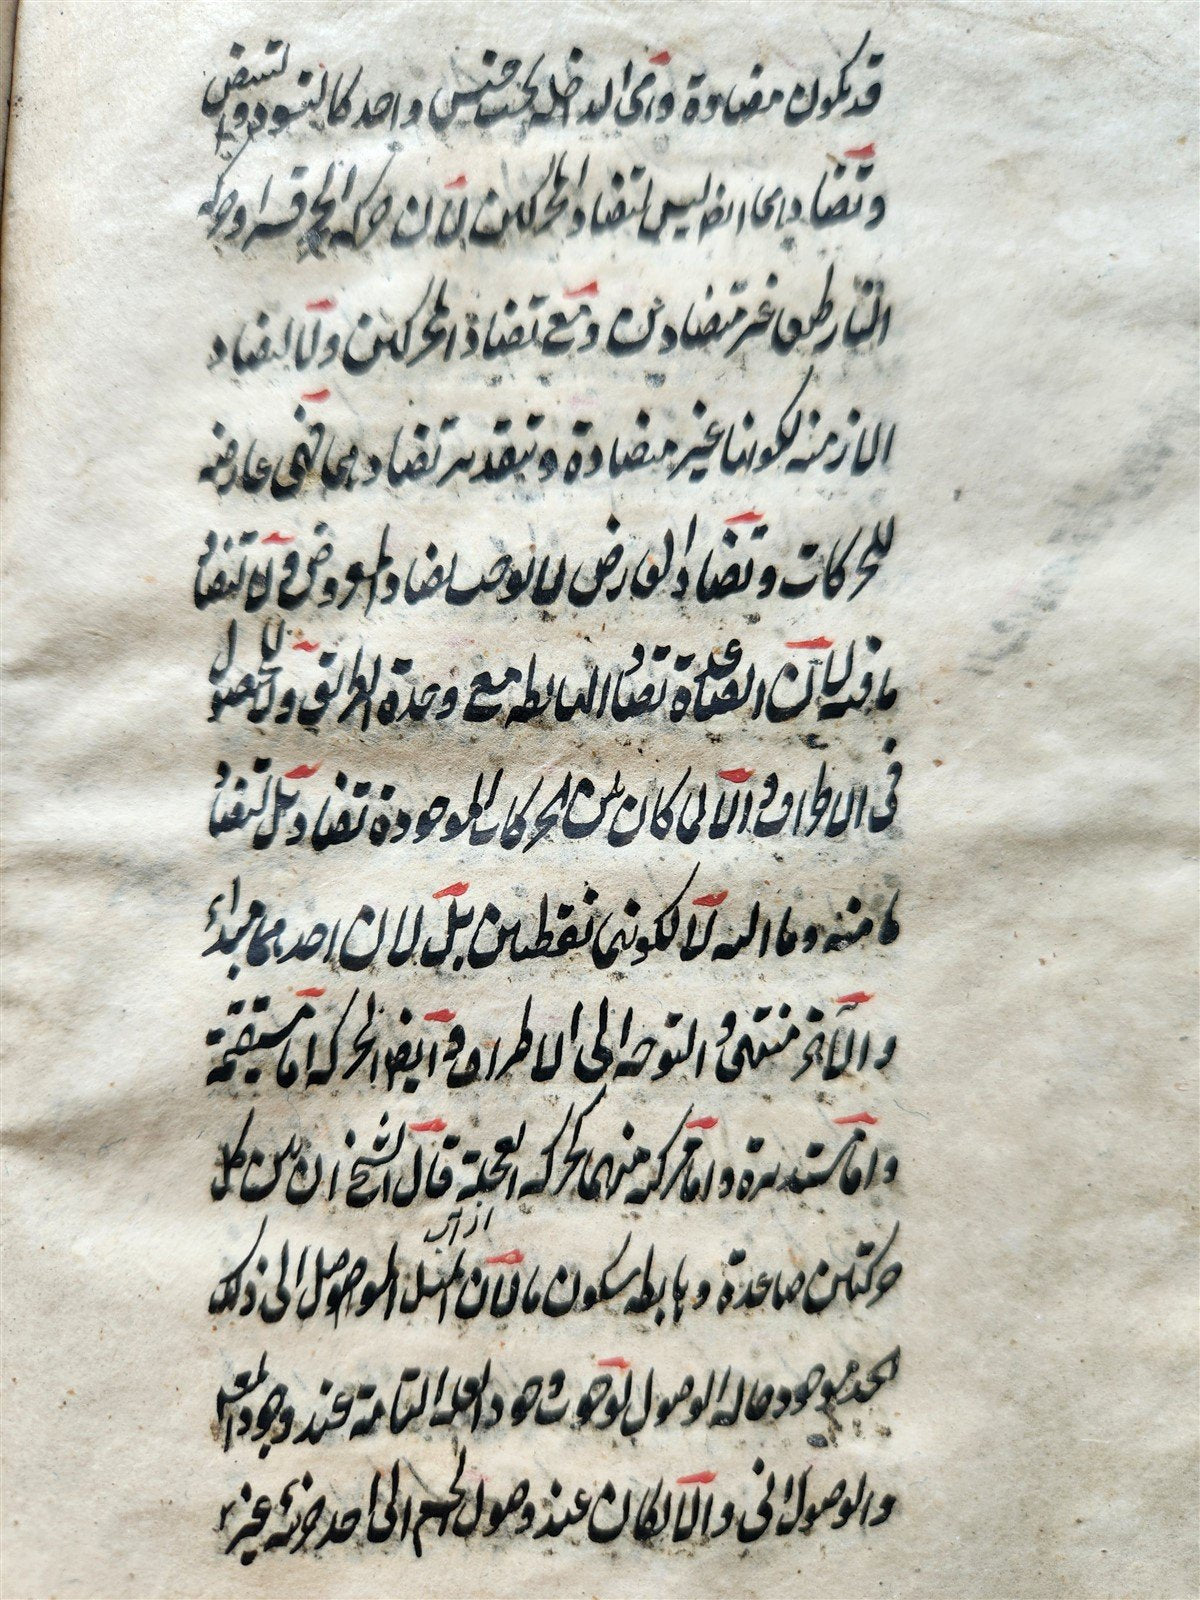 قد تكون متضادة وهي الداخلة تحت جنس واحد كالتسود والتبيض
وتضادهما ايضا ليس لتضاد المحركين لان حركة الحجر قسرا وحركة
النار طبعا غير متضادين ومع تضاد المحركين ولا لتضاد
الازمنة لكونها غير متضادة وبتقدير تضادهما فهي عارضة
للحركات وتضاد العوارض لا يوجب تضاد المعروض ولا لتضاد
ما فيه لان الصاعدة تضاد الهابطة مع وحدة الطريق ولا للحصول
في الاطراف والا لما كان بين الحركات الموجودة تضاد بل لتضاد
ما منه وما اليه لا لكونهما نقطتين بل لان احدهما مبداء
والآخر منتهى و التوجه الى الاطراف وايضا الحركة اما مستقيمة
واما مستديرة واما مركبة منهما كحركة العجلة قال الشيخ ان بين كل
حركتين صاعدة وهابطة سكون ما لان الميل الموصل الى ذلك
الحد موجود حالة الوصول لوجوب وجود العلة التامة عند وجود المعلول
والوصول آني والا لكان عند وصول الجسم الى احد جزئيه غير